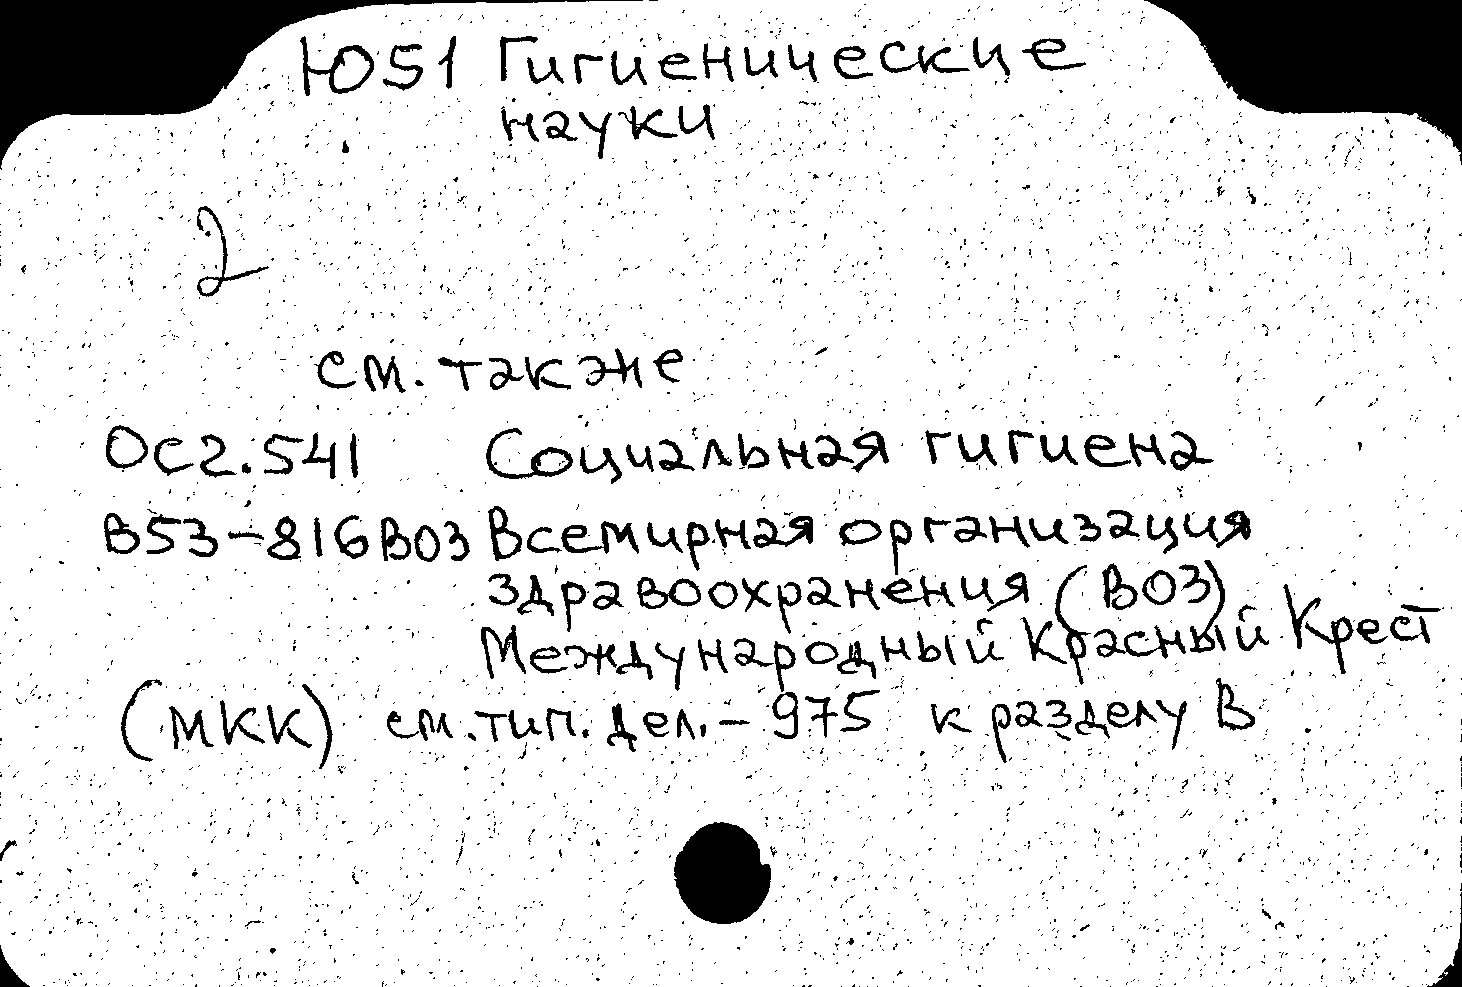 Ю51 Гигиенические
науки
2
см. также
Ос2.541 Социальная гигиена
В53-816ВОЗ Всемирная организация
здравоохранения (ВОЗ)
Международный Красный Крест
(МКК) см. тип. дел. - 975 к разделу В